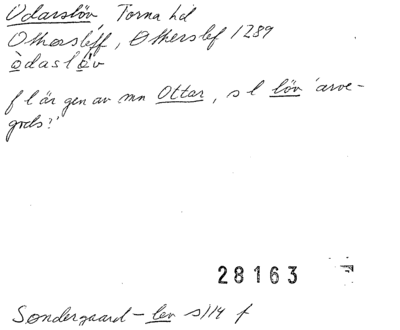 Odarslöv, Torna hd
Othersleff, Otherslef 1289
òdaslöv
f l är gen av mn Ottar, s l löv 'arve-
gods?'
28163
Søndergaard - lev s 114 f